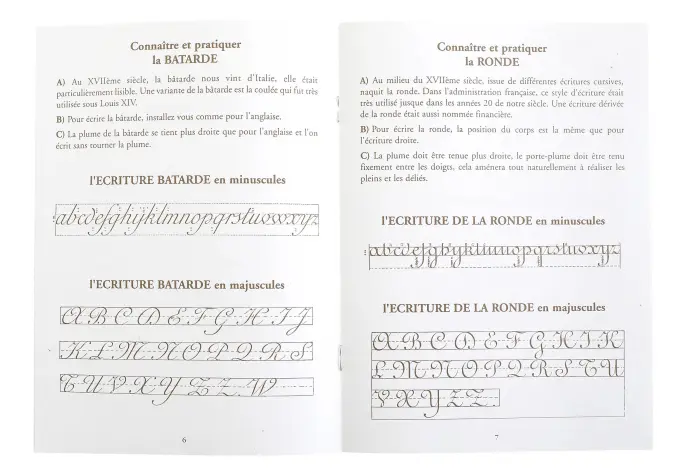 Connaître et pratiquer
la BATARDE
A) Au XVIIème siècle, la bâtarde nous vint d'Italie, elle était
particulièrement lisible. Une variante de la bâtarde est la coulée qui fut très
utilisée sous Louis XIV.
B) Pour écrire la bâtarde, installez vous comme pour l'anglaise.
C) La plume de la bâtarde se tient plus droite que pour l'anglaise et l'on
écrit sans tourner la plume.
l'ECRITURE BATARDE en minuscules
abcdefghijklmnopqrstuvwxyz
l'ECRITURE BATARDE en majuscules
A B C D E F G H I J
K L M N O P Q R S
T U V X Y Z Z W
6
Connaître et pratiquer
la RONDE
A) Au milieu du XVIIème siècle, issue de différentes écritures cursives,
naquit la ronde. Dans l'administration française, ce style d'écriture était
très utilisé jusque dans les années 20 de notre siècle. Une écriture dérivée
de la ronde était aussi nommée financière.
B) Pour écrire la ronde, la position du corps est la même que pour
l'écriture droite.
C) La plume doit être tenue plus droite, le porte-plume doit être tenu
fixement entre les doigts, cela amènera tout naturellement à réaliser les
pleins et les déliés.
l'ECRITURE DE LA RONDE en minuscules
l'ECRITURE DE LA RONDE en majuscules
A B C D E F G H I K
L M N O P Q R S T U
V X Y Z Z
7